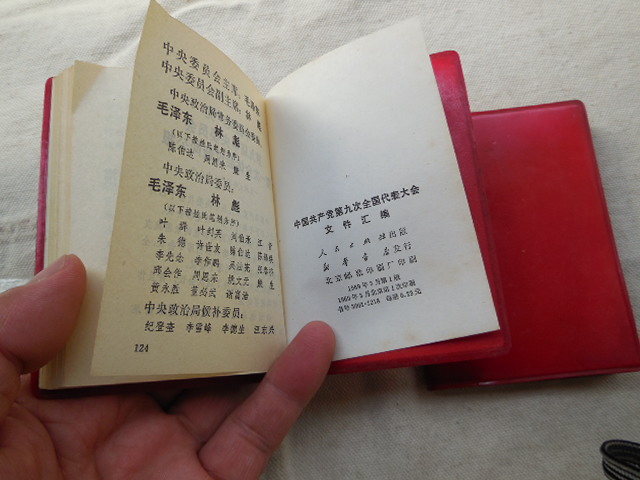 中央委员会主席：毛泽东
中央委员会副主席：林彪
中央政治局常务委员会委员：
毛泽东 林彪
（以下按姓氏笔划为序）
陈伯达 周恩来 康生
中央政治局委员：
毛泽东 林彪
（以下按姓氏笔划为序）
叶群 叶剑英 刘伯承 江青
朱德 许世友 陈伯达 陈锡联
李先念 李作鹏 吴法宪 张春桥
邱会作 周恩来 姚文元 康生
黄永胜 董必武 谢富治
中央政治局候补委员：
纪登奎 李雪峰 李德生 汪东兴
124
中国共产党第九次全国代表大会
文件汇编
人民出版社出版
新华书店发行
北京邮票印刷厂印刷
1969年5月第1版
1969年5月北京第1次印刷
书号 3001·1218